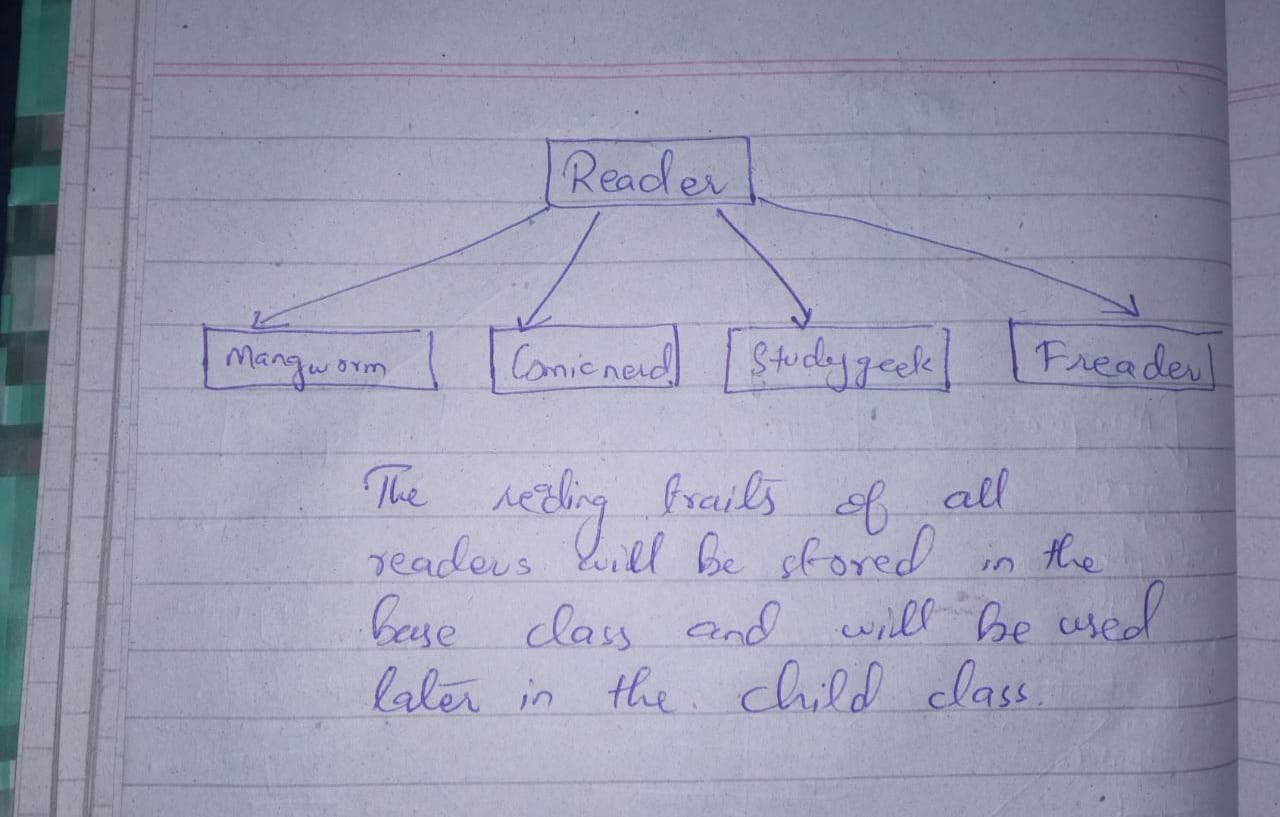 Reader
Mangworm Comicnerd Studygeek Freader
The reading traits of all
readers will be stored in the
base class and will be used
later in the child class.